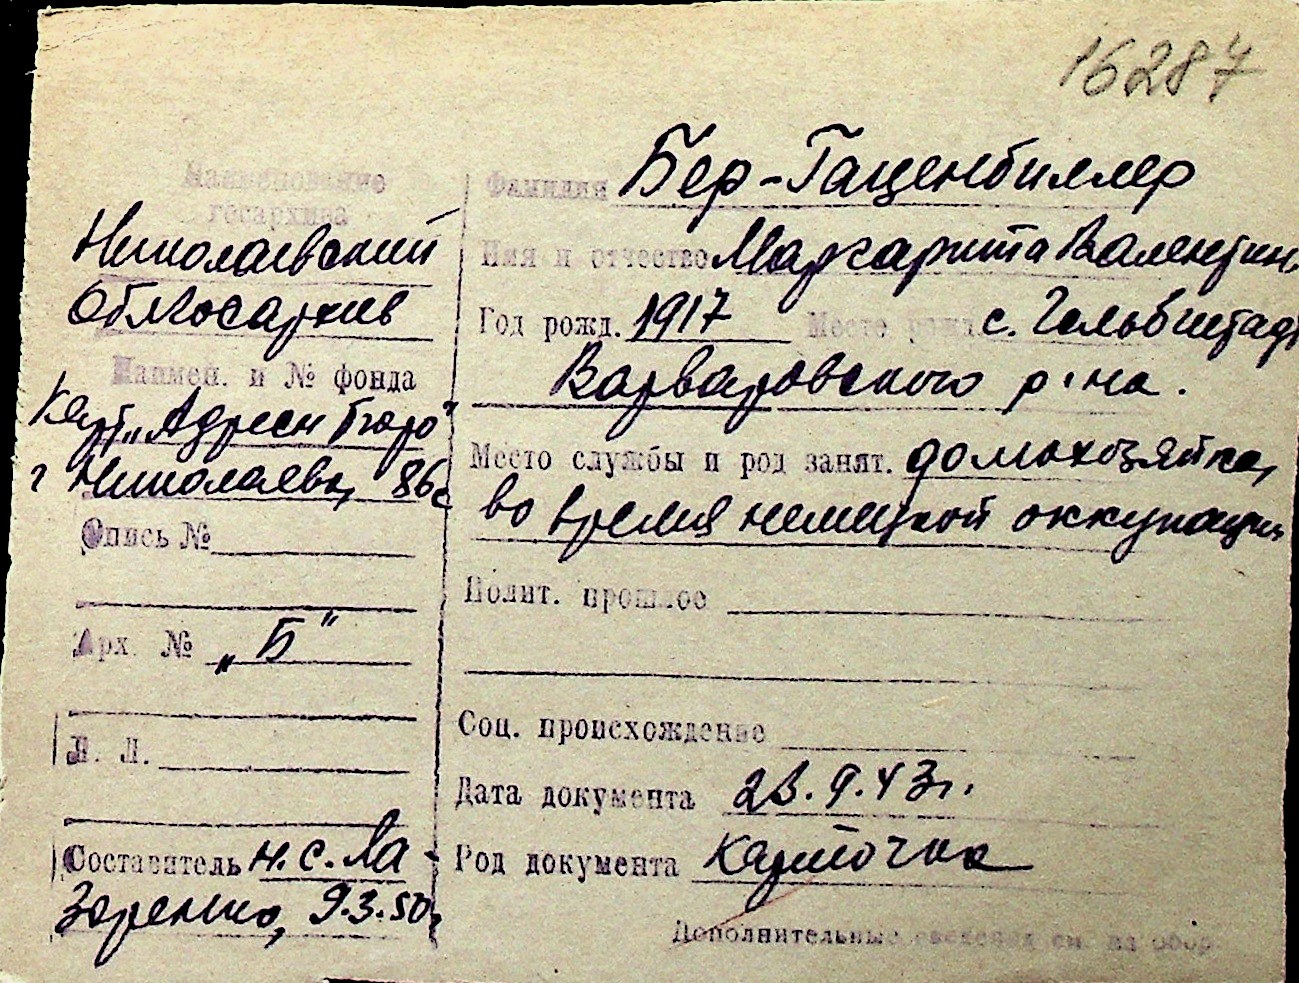 16287
Наименование
госархива
Николаевский
Облгосархив
Наимен. и № фонда
Карт. „Адресн бюро"
г Николаева, 86с
Опись №
Арх. № „Б"
Л. Л.
Составитель н. с. Ла-
заренко, 9.3.50г
Фамилия Бер-Гаценбиллер
Имя и отчество Маргарита Валентин.
Год рожд. 1917 Место рожд. с. Гельбштадт
Варваровского р-на.
Место службы и род занят. домохозяйка,
во время немецкой оккупации
Полит. прошлое
Соц. происхождение
Дата документа 23.9.43г.
Род документа карточка
Дополнительные сведения см. на обор.